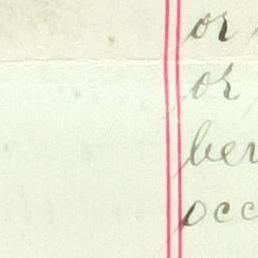 or
or
ber
occ